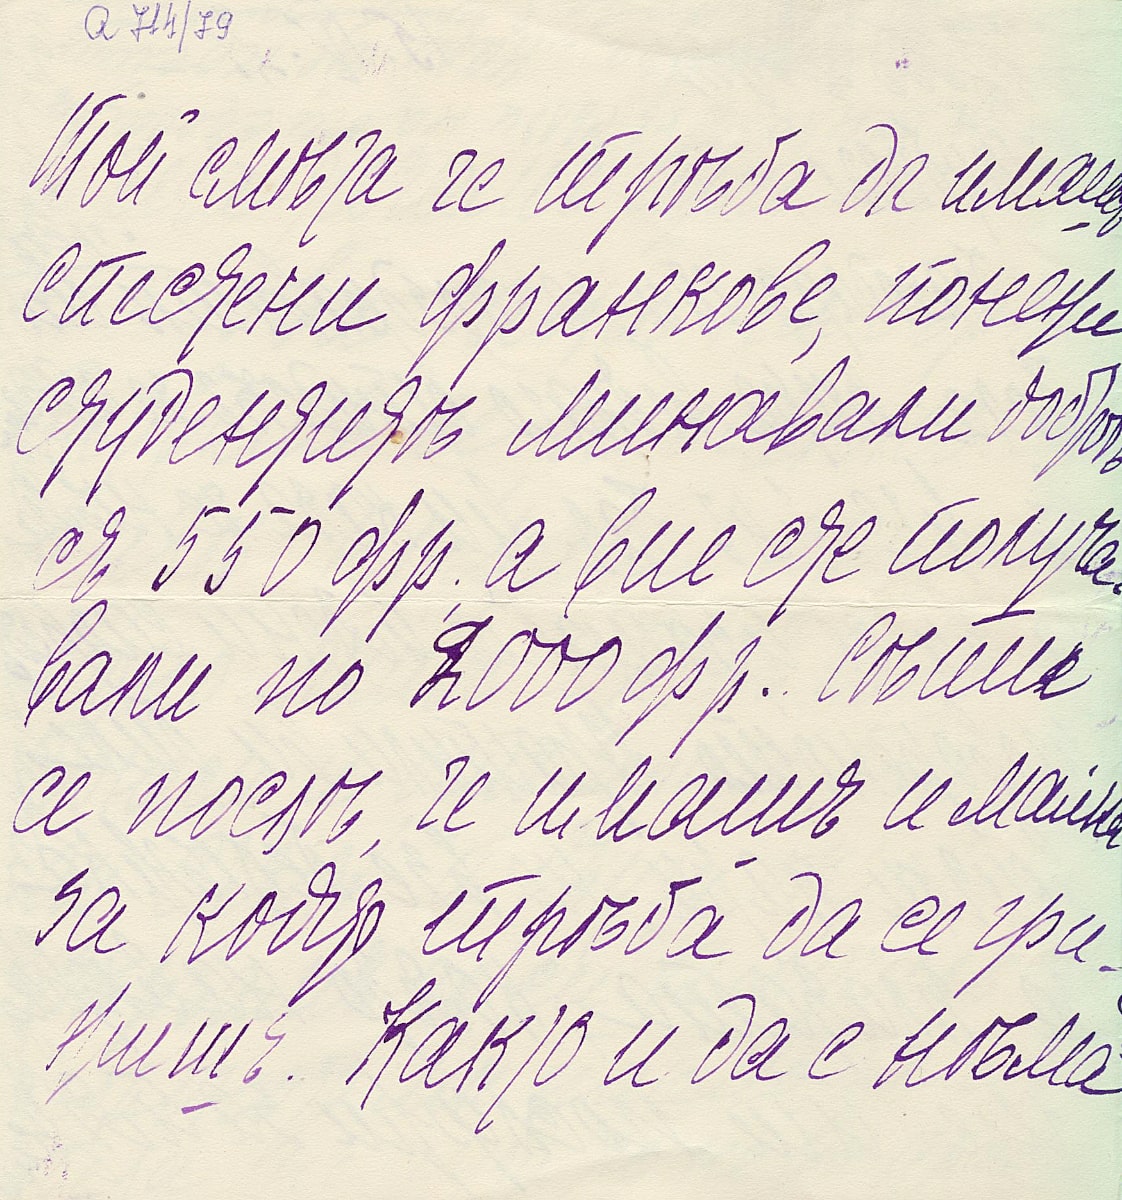 Q 714/79
Той смѣта че трѣба да имашъ
спестени франкове, понеже
студентитѣ минавали добрѣ
съ 550 фр. а вие сте получа-
вали по 2000 фр. 
се послѣ, че имашъ и майка
за която трѣба да се гри-
жишъ. Както и да е нѣма